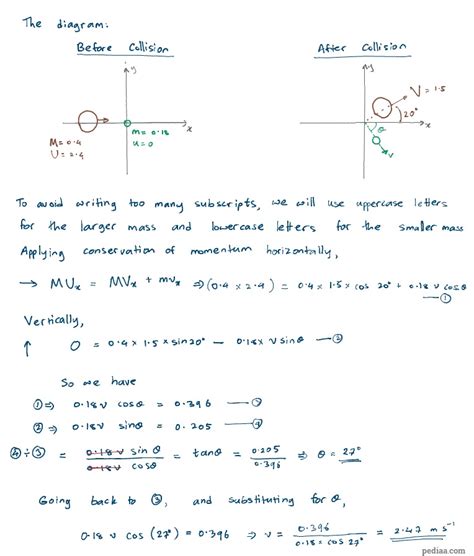 The diagram:
Before Collision
After Collision
y
x
M=0.4
U=2.4
m=0.18
u=0
y
V=1.5
20°
x
θ
v
To avoid writing too many subscripts, we will use uppercase letters
for the larger mass and lowercase letters for the smaller mass
Applying conservation of momentum horizontally,
→ MUₓ = MVₓ + mvₓ ⇒ (0.4 × 2.4) = 0.4 × 1.5 × cos 20° + 0.18 v cosθ —①
Vertically,
↑ 0 = 0.4 × 1.5 × sin 20° − 0.18 × v sinθ —②
So we have
①⇒ 0.18v cosθ = 0.396 —③
②⇒ 0.18v sinθ = 0.205 —④
④÷③ = 0.18 v sinθ / 0.18 v cosθ = tanθ = 0.205 / 0.396 ⇒ θ = 27°
Going back to ③, and substituting for θ,
0.18 v cos (27°) = 0.396 ⇒ v = 0.396 / 0.18 × cos 27° = 2.47 m s⁻¹
pediaa.com